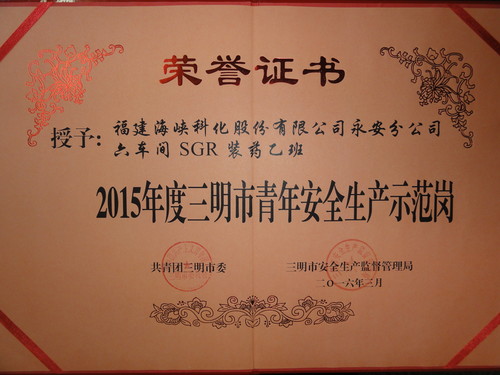 荣誉证书
授予：福建海峡科化股份有限公司永安分公司
六车间 SGR 装药乙班
2015年度三明市青年安全生产示范岗
共青团三明市委 三明市安全生产监督管理局
二〇一六年三月